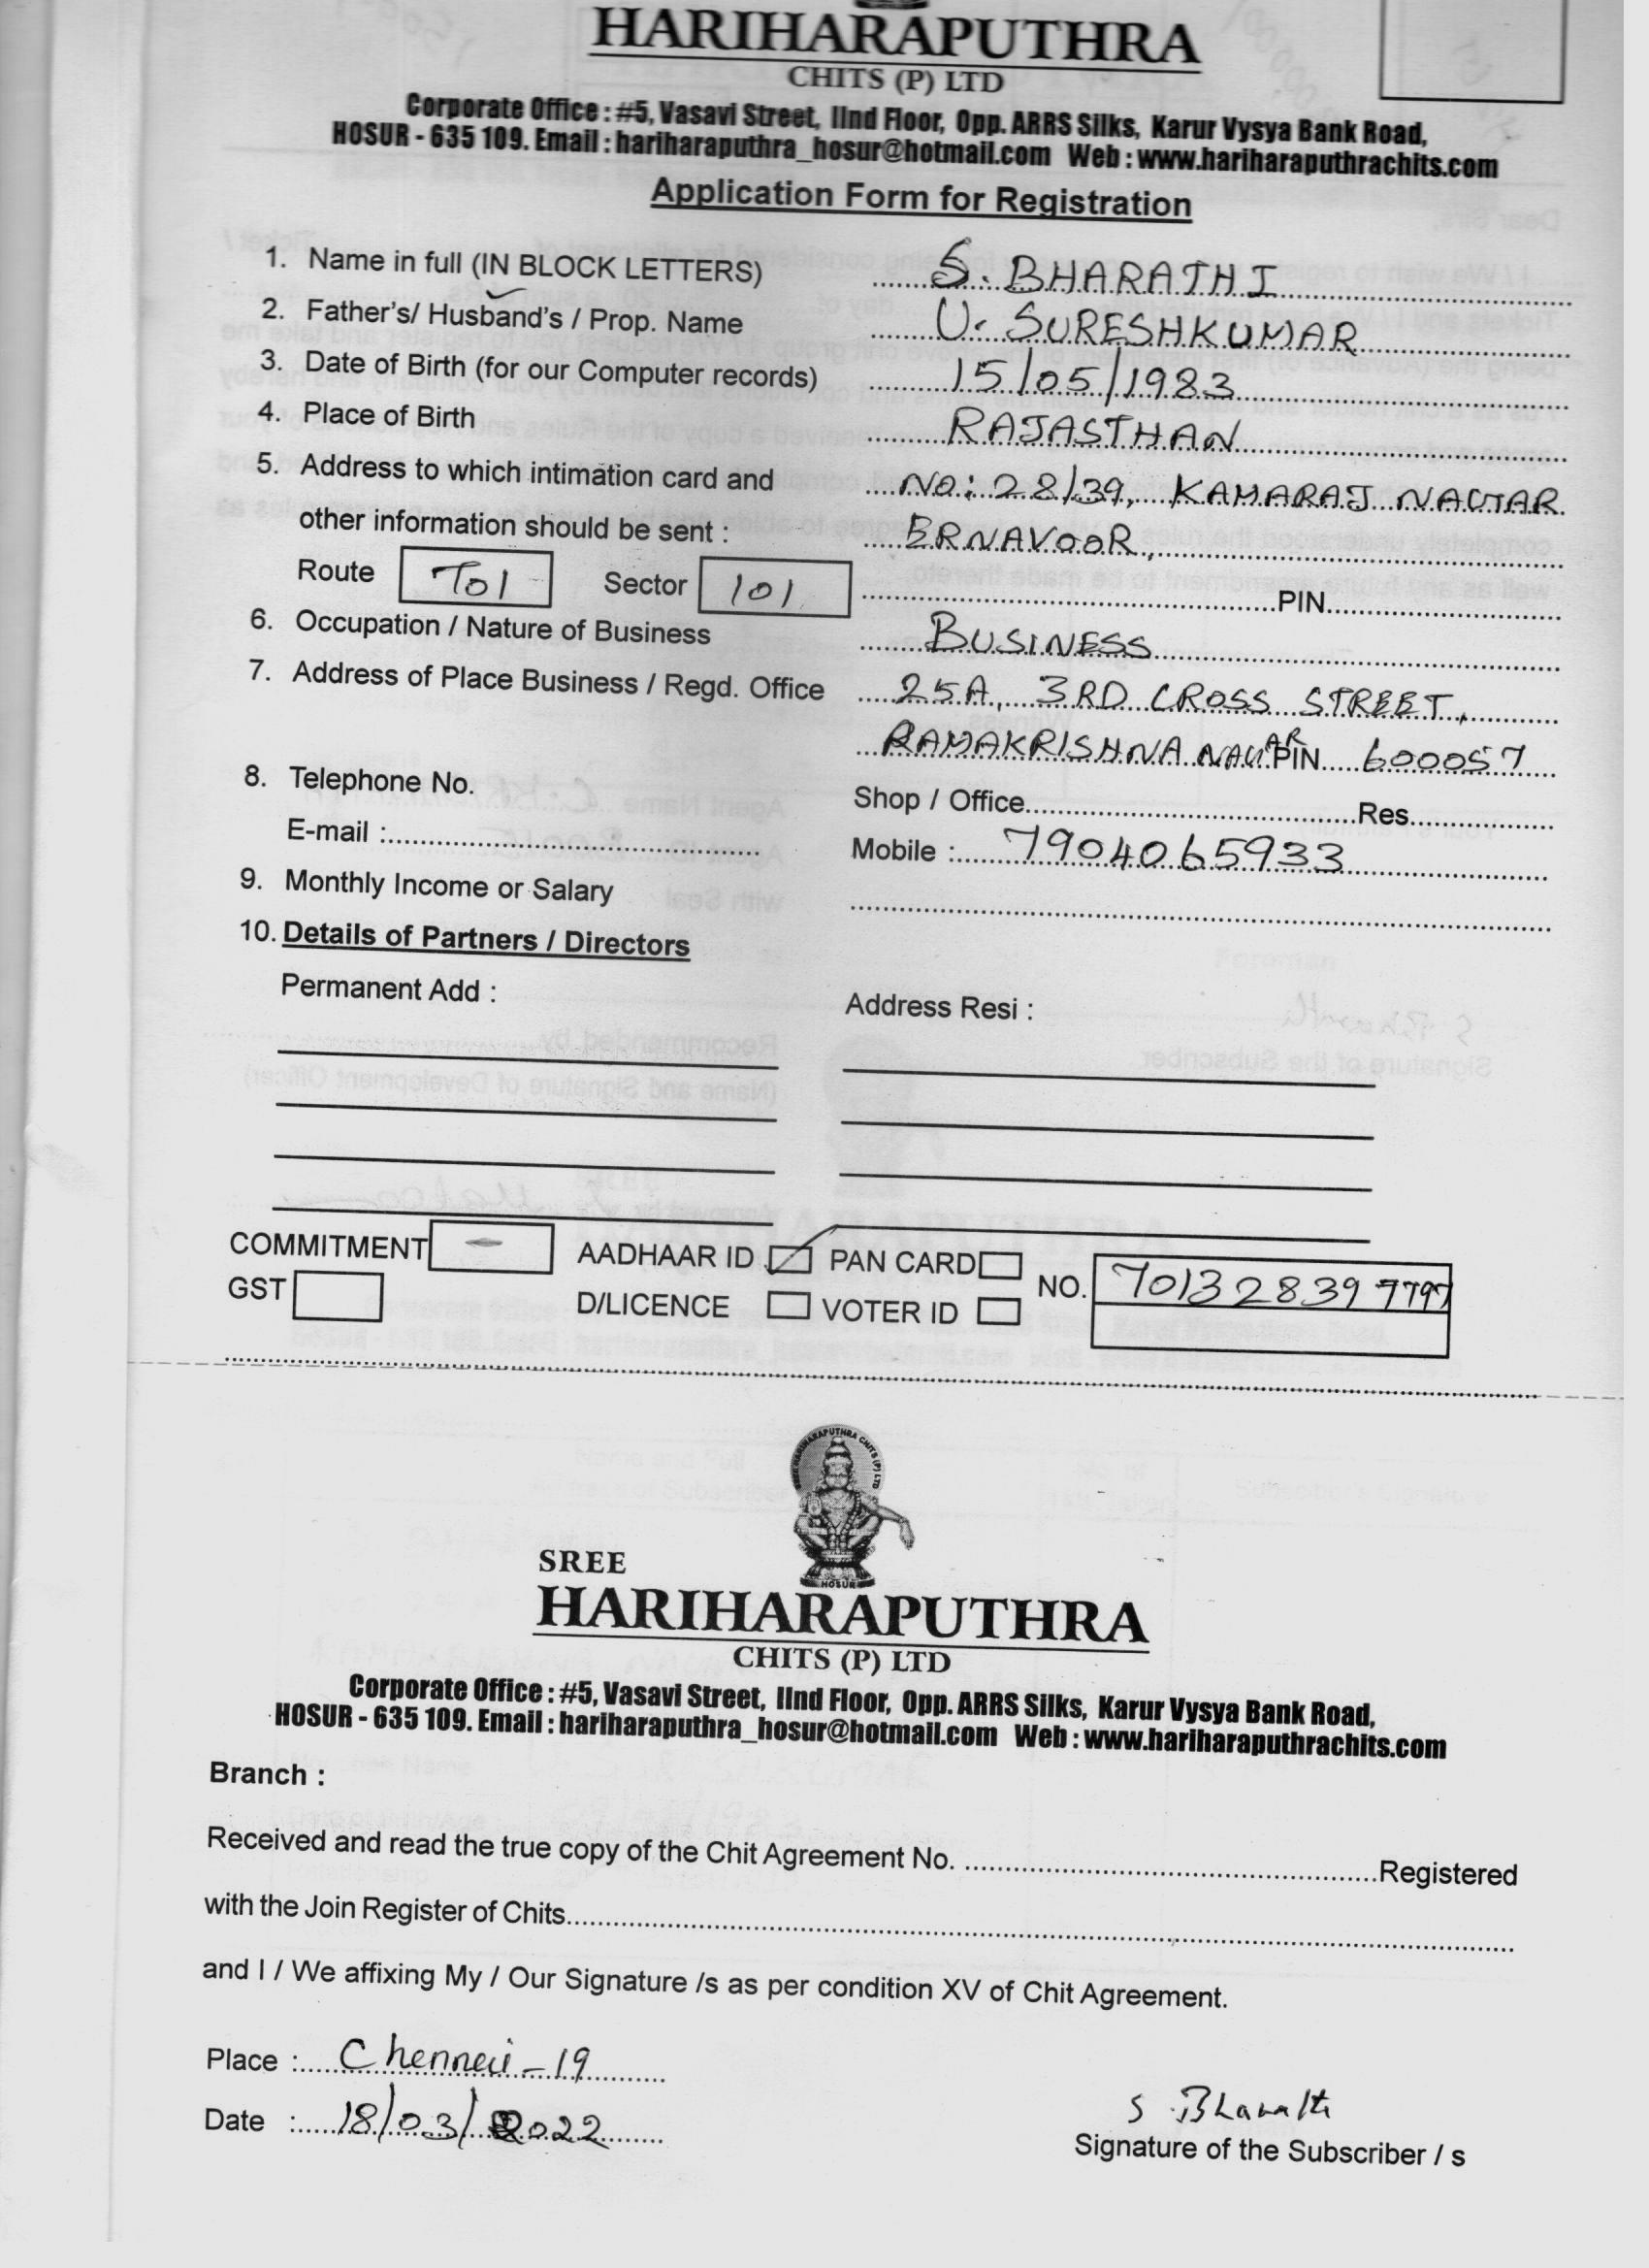 HARIHARAPUTHRA
CHITS (P) LTD
Corporate Office : #5, Vasavi Street, IInd Floor, Opp. ARRS Silks, Karur Vysya Bank Road,
HOSUR - 635 109. Email : hariharaputhra_hosur@hotmail.com Web : www.hariharaputhrachits.com
Application Form for Registration
1. Name in full (IN BLOCK LETTERS) S. BHARATHI
2. Father's/ Husband's / Prop. Name U. SURESHKUMAR
3. Date of Birth (for our Computer records) 15/05/1983
4. Place of Birth RAJASTHAN
5. Address to which intimation card and No: 28/39, KAMARAJ NAGAR
other information should be sent : ERNAVOOR,
Route T01 Sector 101 PIN
6. Occupation / Nature of Business BUSINESS
7. Address of Place Business / Regd. Office 25A, 3RD CROSS STREET,
RAMAKRISHNA NAGAR PIN 600057
8. Telephone No. Shop / Office Res.
E-mail : Mobile : 7904065933
9. Monthly Income or Salary
10. Details of Partners / Directors
Permanent Add : Address Resi :
COMMITMENT - AADHAAR ID PAN CARD NO. 70132839 7797
GST D/LICENCE VOTER ID
SREE HARIHARAPUTHRA CHITS (P) LTD
HOSUR
SREE
HARIHARAPUTHRA
CHITS (P) LTD
Corporate Office : #5, Vasavi Street, IInd Floor, Opp. ARRS Silks, Karur Vysya Bank Road,
HOSUR - 635 109. Email : hariharaputhra_hosur@hotmail.com Web : www.hariharaputhrachits.com
Branch :
Received and read the true copy of the Chit Agreement No. Registered
with the Join Register of Chits
and I / We affixing My / Our Signature /s as per condition XV of Chit Agreement.
Place : Chennai - 19
Date : 18/03/2022
S Bharathi
Signature of the Subscriber / s